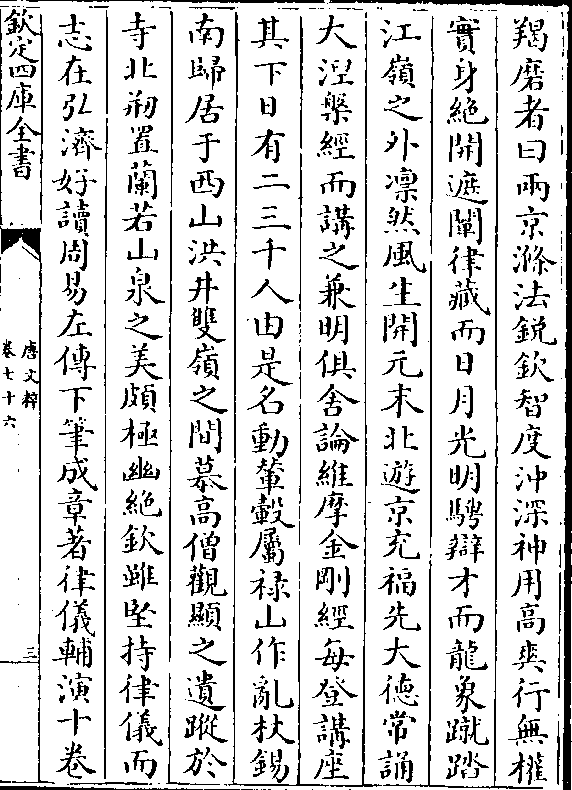 羯磨者曰兩京滌法鋭欽智度沖深神用高爽行無權
實身絶開遮闡律藏而日月光明騁辯才而龍象蹴踏
江嶺之外凛然風生開元末北遊京充福先大德常誦
大涅槃經而講之兼明俱舍論維摩金剛經每登講座
其下日有二三千人由是名動輦轂屬禄山作亂杖錫
南歸居于西山洪井雙嶺之間慕高僧觀顯之遺蹤於
寺北刱置蘭若山泉之美頗極幽絶欽雖堅持律儀而
志在弘濟好讀周易左傳下筆成章著律儀輔演十卷
欽定四庫全書
唐文粹
卷七十六
三